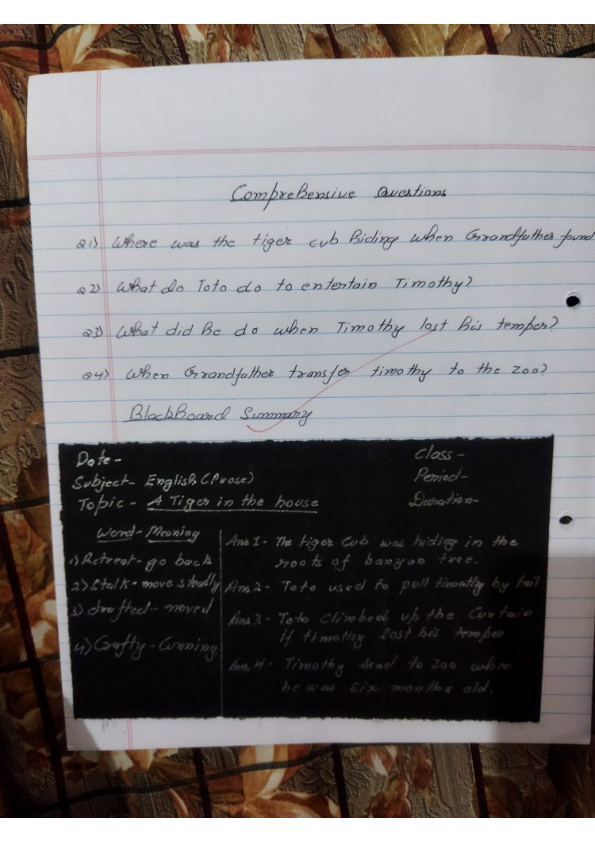 Comprehensive Questions
Q1) Where was the tiger cub hiding when Grandfather found
Q2) What do Toto do to entertain Timothy?
Q3) What did he do when Timothy lost his temper?
Q4) When Grandfather transfer timothy to the zoo?
BlackBoard Summary
Date-
Class-
Subject- English (Prose)
Period-
Topic- A Tiger in the house
Duration-
Word-Meaning
1) Retreat- go back
2) Stalk- move steadly
3) drafted- moved
4) Crafty- Cunning
Ans 1- The tiger Cub was hiding in the
roots of banyan tree.
Ans 2- Toto used to pull timothy by tail
Ans 3- Toto Climbed up the Curtain
if timothy lost his temper
Ans 4- Timothy send to zoo when
he was six months old.